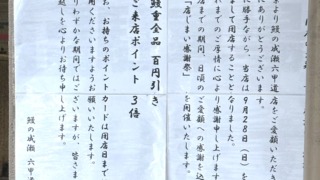 より鰻の成瀬六甲道店をご愛顧いただき
にありがとうございます。
勝手ながら、当店は9月28日(日)を
して閉店することとなりました。
れまでのご厚情に心より
店までの期間、日頃のご愛顧への感謝を込
「店じまい感謝祭」を開催いたします。
鰻重全品 百円引き
ご来店ポイント 3倍
お、お持ちのポイントカードは閉店日まで
用くださいますようお願いいたします。
りわずかな期間ではございますが、皆さま
越しを心よりお待ち申し上げます。
鰻の成瀬 六甲道